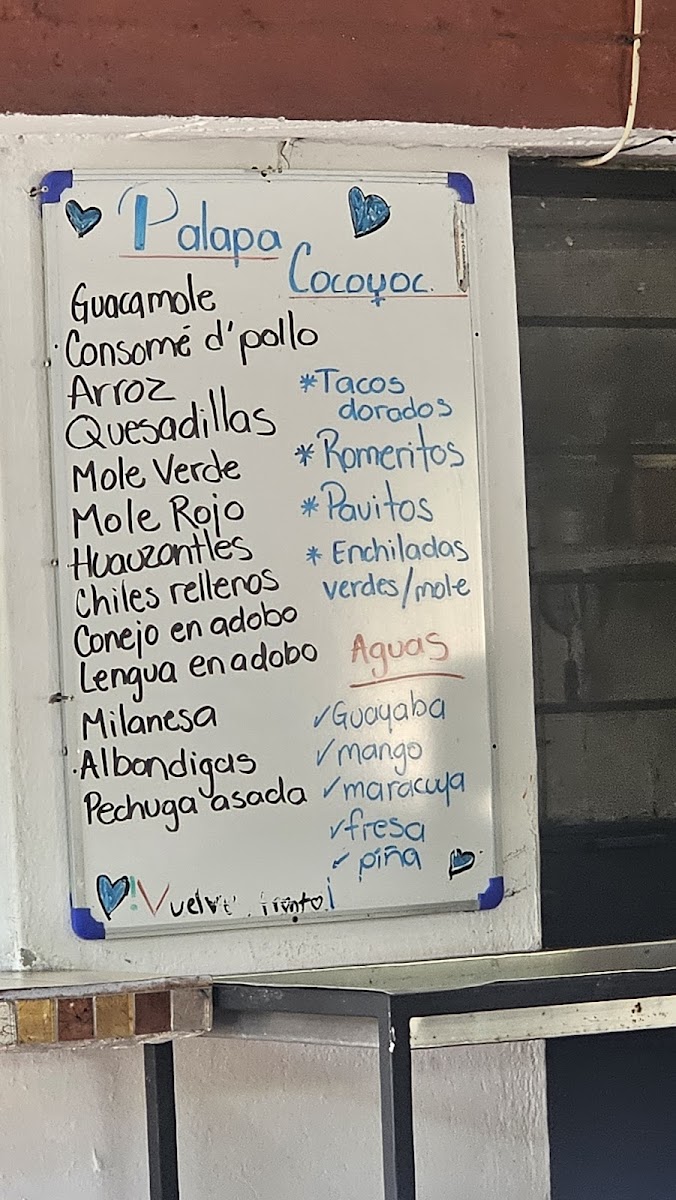 Palapa
Cocoyoc.
Guacamole
Consomé d'pollo
Arroz
Quesadillas
Mole Verde
Mole Rojo
Huauzontles
Chiles rellenos
Conejo en adobo
Lengua en adobo
Milanesa
Albondigas
Pechuga asada
*Tacos
dorados
*Romeritos
*Pavitos
*Enchiladas
verdes/mole
Aguas
✓Guayaba
✓mango
✓maracuya
✓fresa
✓piña